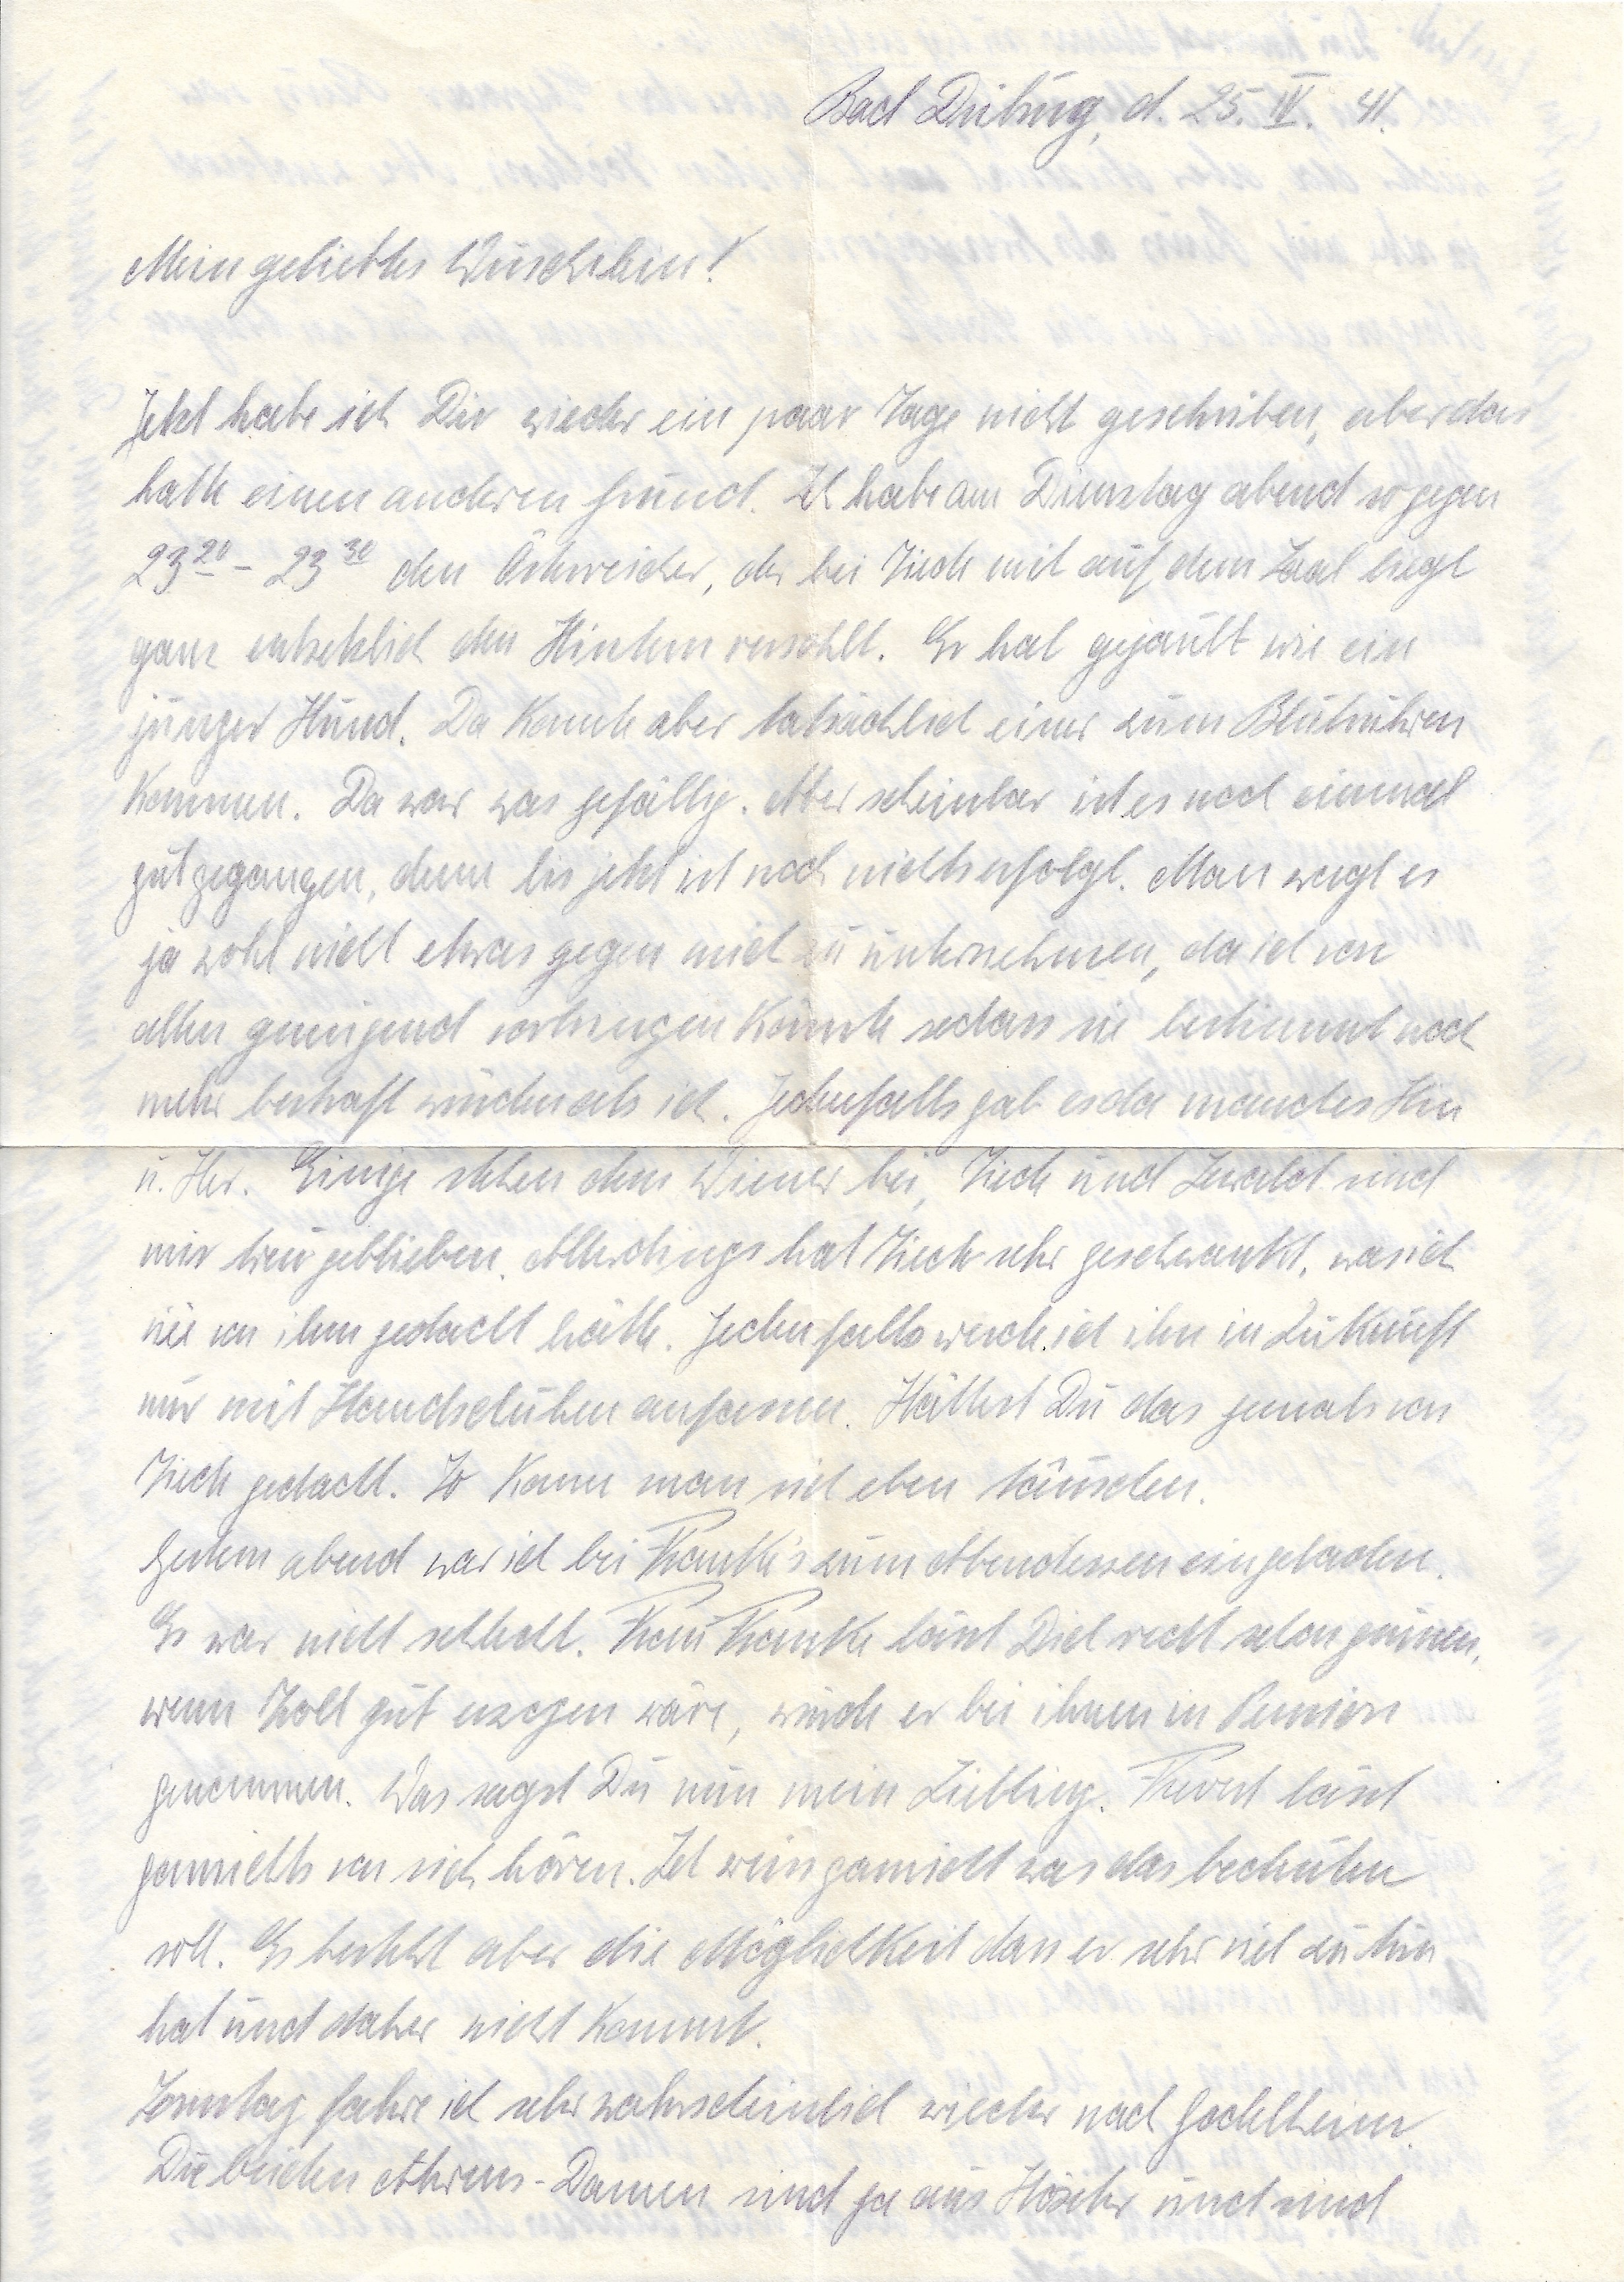 Bad Driburg, d. 25. IV. 41.
Mein geliebtes Wuschelein!
Jetzt habe ich Dir wieder ein paar Tage nicht geschrieben, aber das
hatte einen anderen Grund. Ich habe am Dienstag abend so gegen
23 20 - 23 30 den , der bei Tiede mit auf dem Saal liegt
ganz entsetzlich den Hintern versohlt. Er hat gejault wie ein
junger Hund. Da konnte aber tatsächlich einer zum Blutrühren
kommen. Da war was gefällig. Aber scheinbar ist es noch einmal
gut gegangen, denn bis jetzt ist noch nichts erfolgt. Man wagt es
ja wohl nicht etwas gegen mich zu unternehmen, da ich von
allen genügend vorbringen könnte sodass sie bestimmt noch
mehr bestraft würden als ich. Jedenfalls gab es da manches Hin
u. Her. Einige stehen dem Wiener bei, Tiede und Sewald sind
mir treu geblieben. Allerdings hat Tiede sehr geschwankt, was ich
nie von ihm gedacht hätte. Jedenfalls werde ich ihn in Zukunft
nur mit Handschuhen anfassen. Hättest Du das jemals von
Tiede gedacht. So kann man sich eben täuschen.
Gestern abend war ich bei Franke's zum Abendessen eingeladen.
Es war nicht schlecht. Frau Franke lässt Dich recht schön grüssen,
wenn Troll gut erzogen wäre, würde er bei ihnen in Pension
genommen. Was sagst Du nun mein Liebling. lässt
garnichts von sich hören. Ich weiss garnicht was das bedeuten
soll. Es besteht aber die Möglichkeit dass er sehr viel zu tun
hat und daher nicht kommt.
Sonntag fahre ich sehr wahrscheinlich wieder nach Godelheim.
Die beiden Ahrens-Damen sind ja aus Höxter und sind